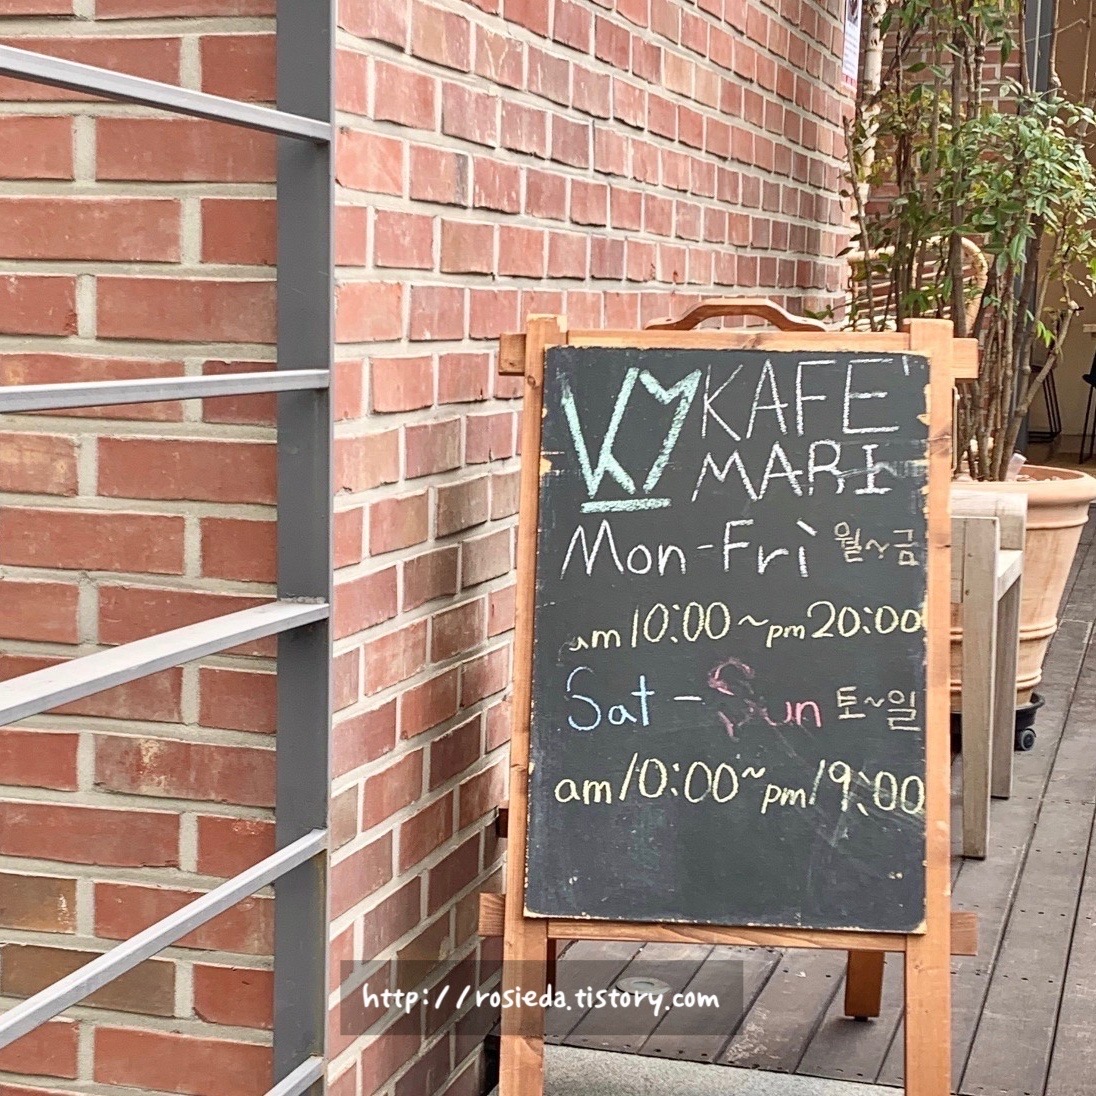 KAFE'
MARI
Mon-Fri 월~금
am 10:00 ~ pm 20:00
Sat - Sun 토~일
am 10:00 ~ pm 19:00
http://rosieda.tistory.com